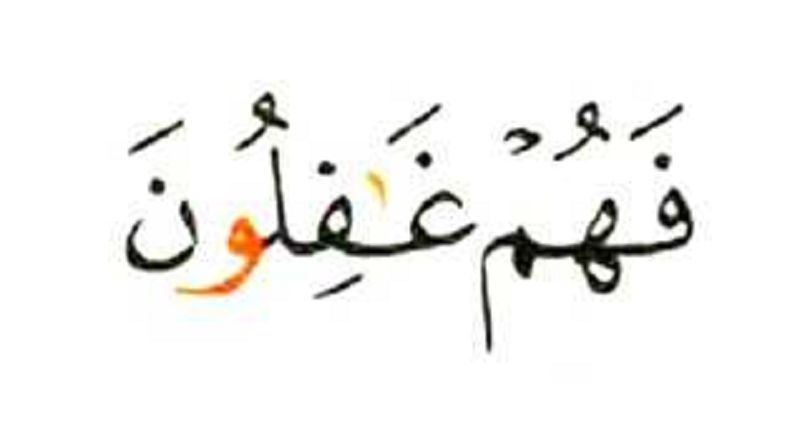 فَهُمۡ غَٰفِلُونَ